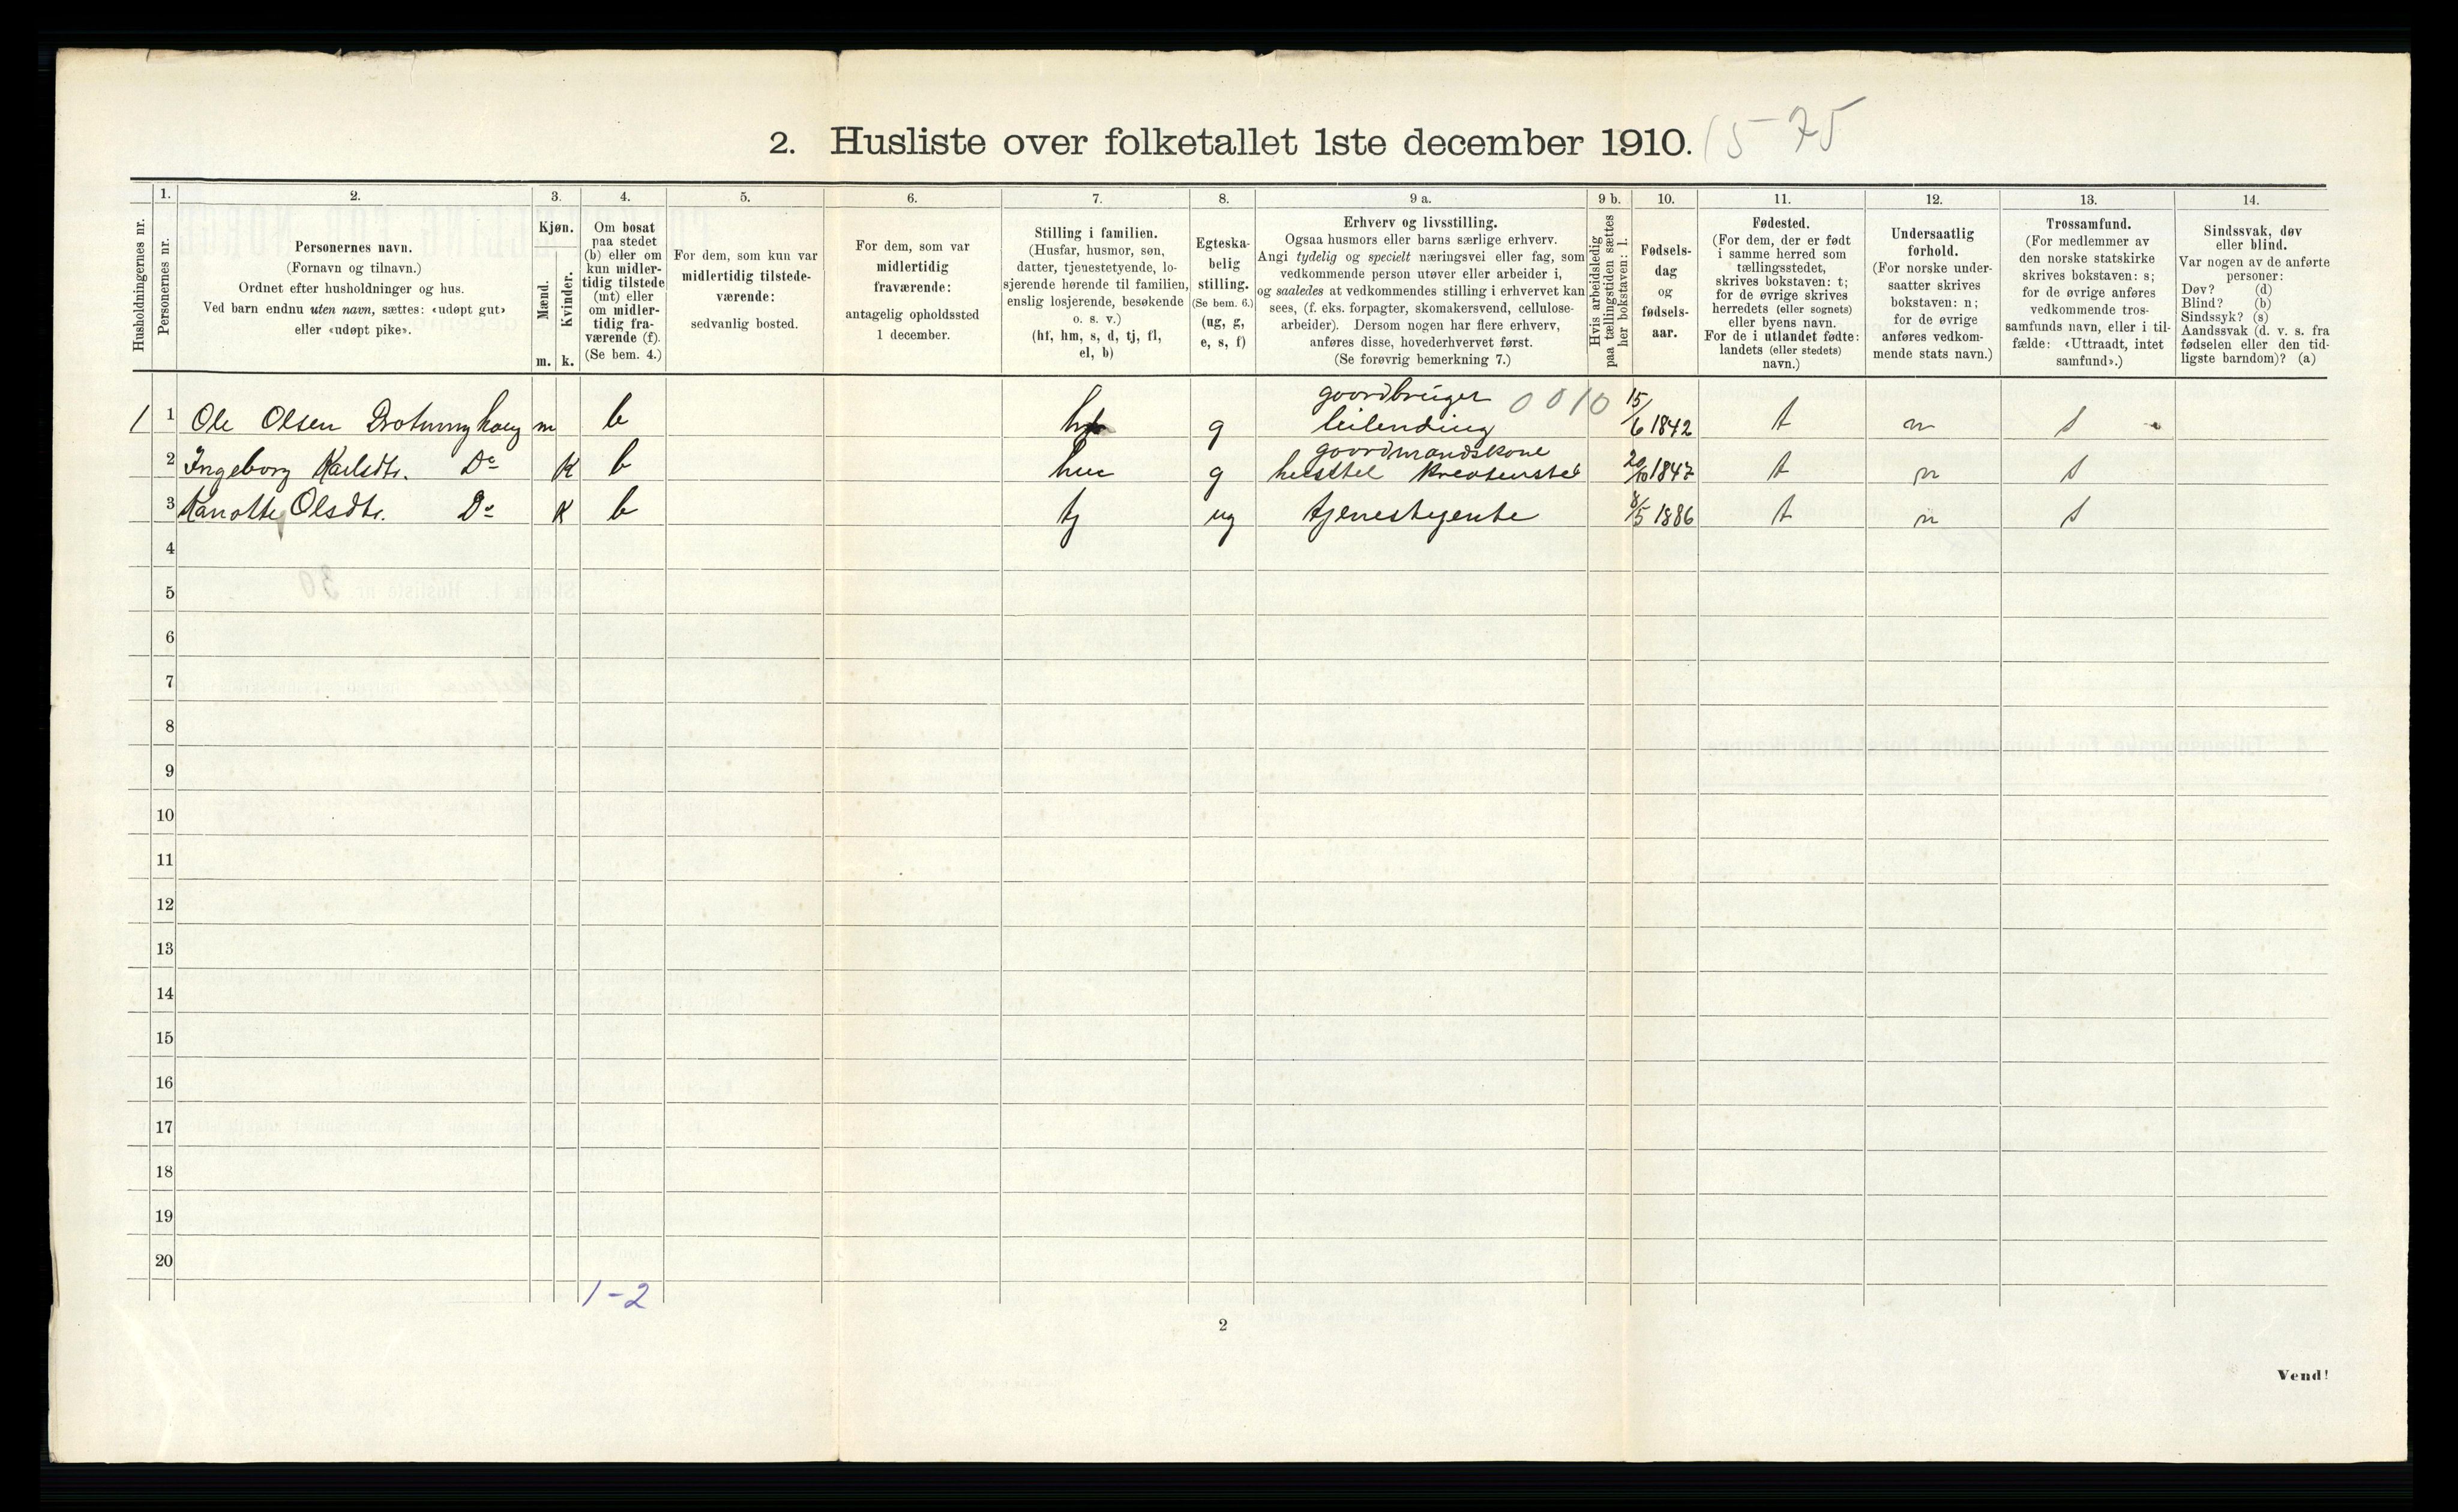 2. Husliste over folketallet 1ste december 1910. 15-75
1. 2. 3. 4. 5. 6. 7. 8. 9 a. 9 b. 10. 11. 12. 13. 14.
Husholdningernes nr.
Personernes nr.
Personernes navn.
(Fornavn og tilnavn.)
Ordnet efter husholdninger og hus.
Ved barn endnu uten navn, sættes: «udøpt gut»
eller «udøpt pike».
Kjøn.
Mænd.
Kvinder.
m. k.
Om bosat
paa stedet
(b) eller om
kun midler-
tidig tilstede
(mt) eller
om midler-
tidig fra-
værende (f).
(Se bem. 4.)
For dem, som kun var
midlertidig tilstede-
værende:
sedvanlig bosted.
For dem, som var
midlertidig
fraværende:
antagelig opholdssted
1 december.
Stilling i familien.
(Husfar, husmor, søn,
datter, tjenestetyende, lo-
sjerende hørende til familien,
enslig losjerende, besøkende
o. s. v.)
(hf, hm, s, d, tj, fl,
el, b)
Egteska-
belig
stilling.
(Se bem. 6.)
(ug, g,
e, s, f)
Erhverv og livsstilling.
Ogsaa husmors eller barns særlige erhverv.
Angi tydelig og specielt næringsvei eller fag, som
vedkommende person utøver eller arbeider i,
og saaledes at vedkommendes stilling i erhvervet kan
sees, (f. eks. forpagter, skomakersvend, cellulose-
arbeider). Dersom nogen har flere erhverv,
anføres disse, hovederhvervet først.
(Se forøvrig bemerkning 7.)
Hvis arbeidsledig
paa tællingstiden sættes
her bokstaven: l.
Fødsels-
dag
og
fødsels-
aar.
Fødested.
(For dem, der er født
i samme herred som
tællingsstedet,
skrives bokstaven: t;
for de øvrige skrives
herredets (eller sognets)
eller byens navn.
For de i utlandet fødte:
landets (eller stedets)
navn.)
Undersaatlig
forhold.
(For norske under-
saatter skrives
bokstaven: n;
for de øvrige
anføres vedkom-
mende stats navn.)
Trossamfund.
(For medlemmer av
den norske statskirke
skrives bokstaven: s;
for de øvrige anføres
vedkommende tros-
samfunds navn, eller i til-
fælde: «Uttraadt, intet
samfund».)
Sindssvak, døv
eller blind.
Var nogen av de anførte
personer:
Døv? (d)
Blind? (b)
Sindssyk? (s)
Aandssvak (d. v. s. fra
fødselen eller den tid-
ligste barndom)? (a)
goordbruger 0010
1 1 Ole Olsen Drotninghaug m b g leilending 15/6 1842 t n s
goordmandskone
2 Ingeborg Karlsdtr. Do K b hm g 20/10 1847 t n s
3 Olsdtr. Do K b tj ug tjenestejente 8/5 1886 t n s
4
5
6
7
8
9
10
11
12
13
14
15
16
17
18
19
20
1-2
2
Vend!